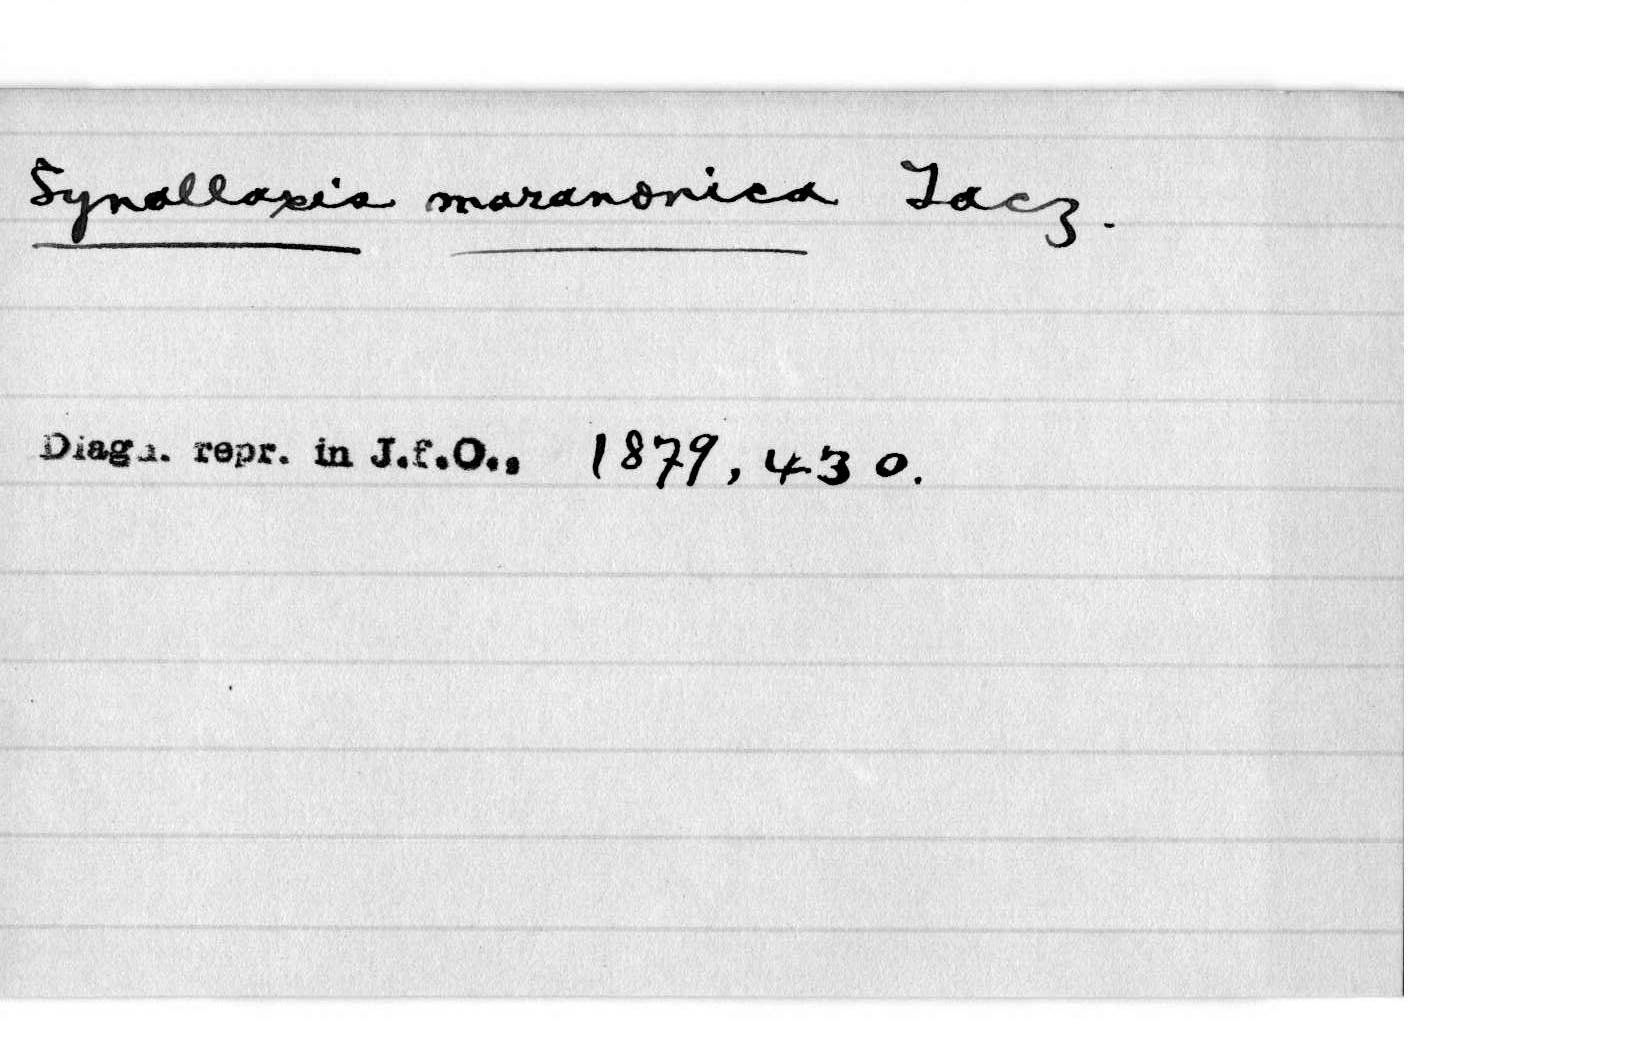 Synallaxis maranonica Tacz.
Diagn. repr. in J.f.O., 1879, 430.